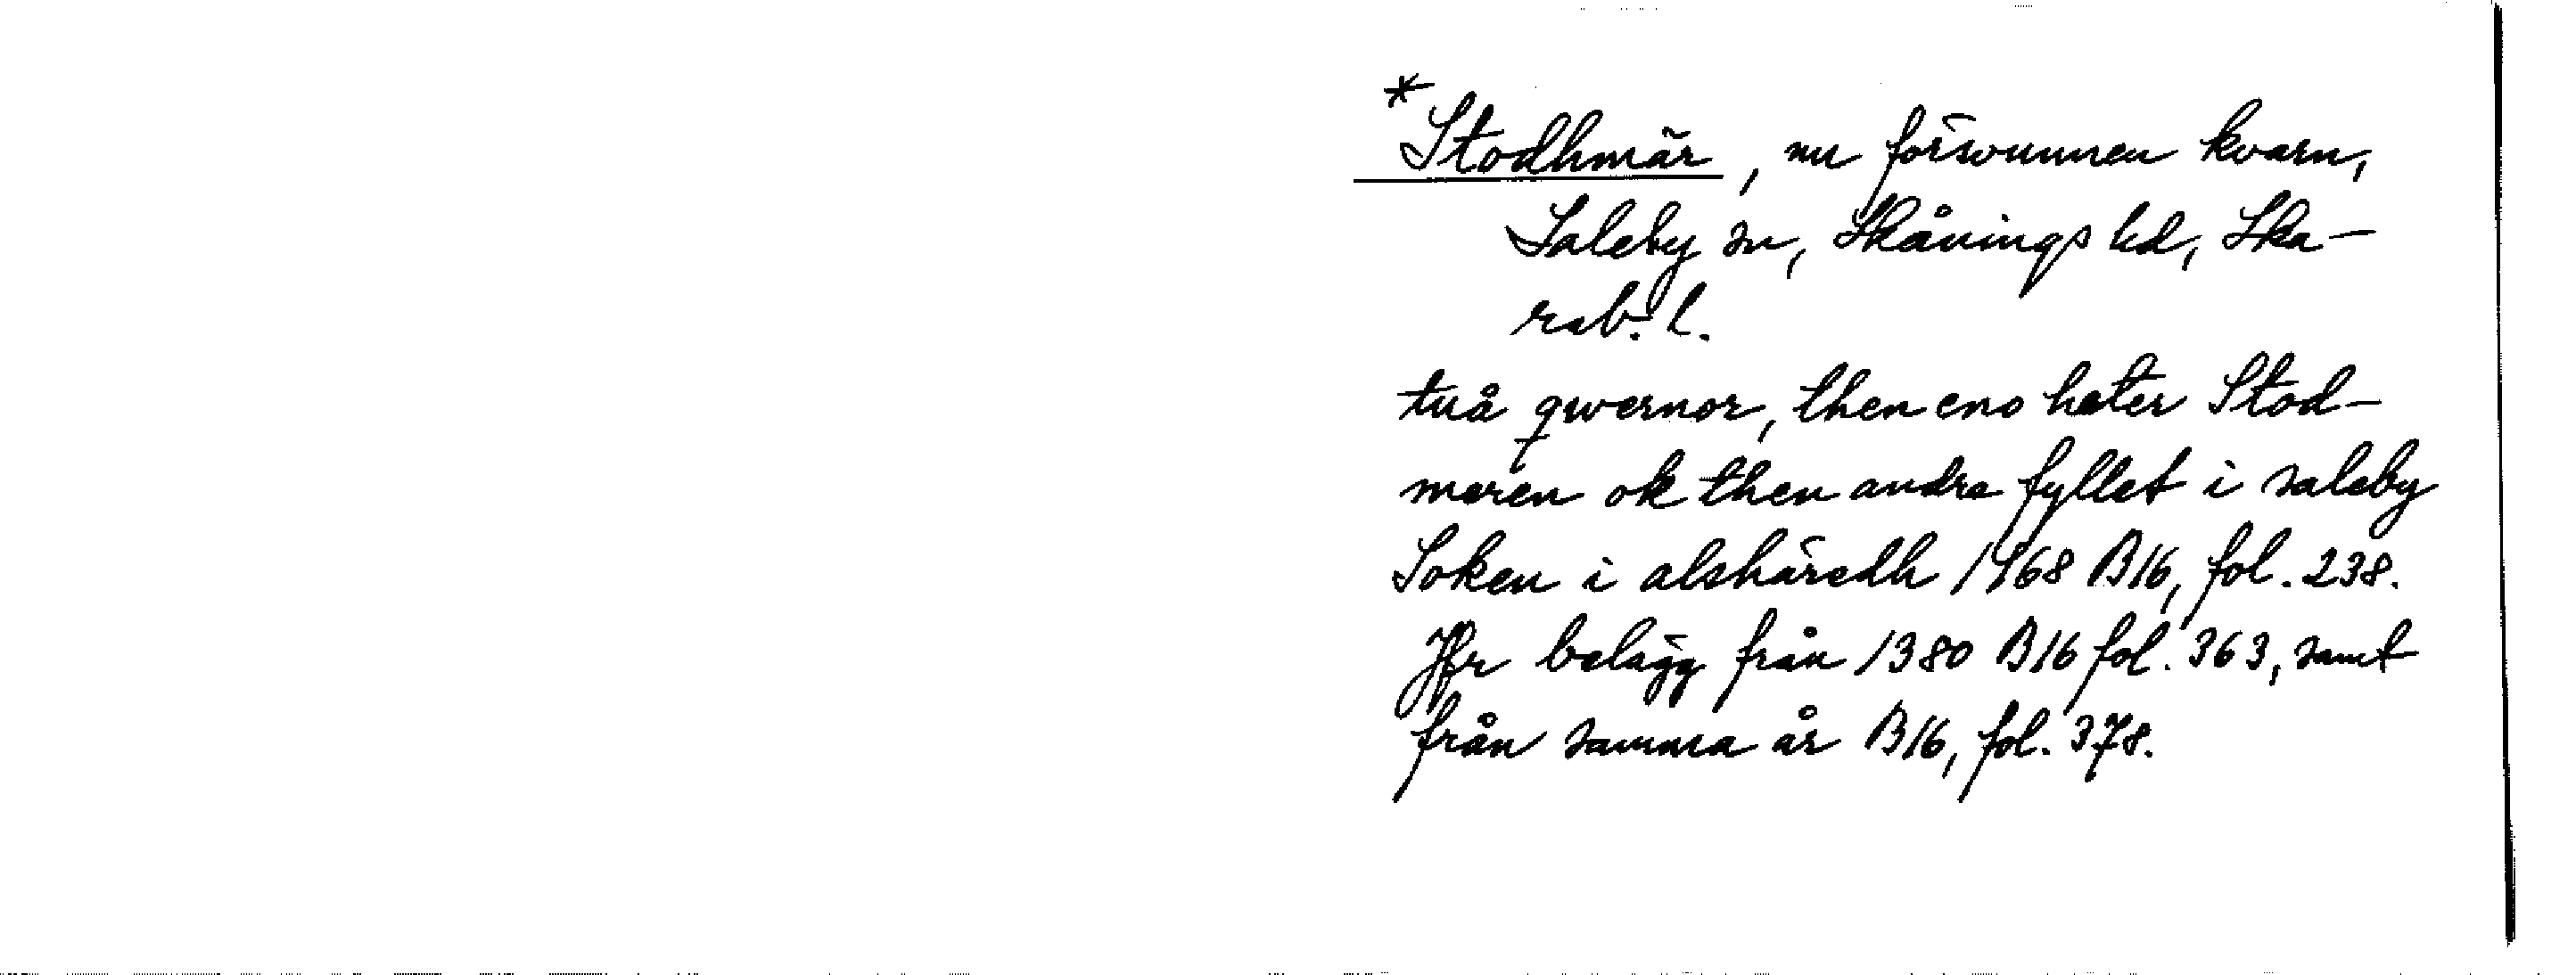 *Stodhmär, nu försvunnen kvarn,
Saleby sn, Skånings hd, Ska-
rab. l.
tuå qwernor, then eno heter Stod-
meren ok then andra fyllet i saleby
Soken i alshäredh 1468 B16, fol. 238.
Jfr belägg från 1380 B16 fol. 363, samt
från samma år B16, fol. 378.